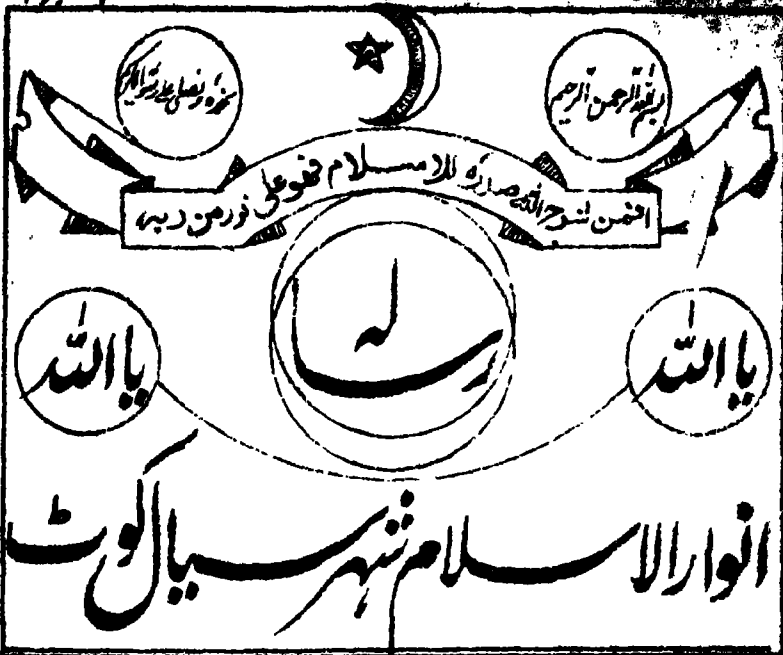 بسم اللہ الرحمن الرحیم
نحمدہ ونصلی علی رسولہ الکریم
افمن شرح اللہ صدرہ للاسلام فھو علی نور من ربہ
رسالہ
یا اللہ
یا اللہ
انوار الاسلام شہر سیالکوٹ